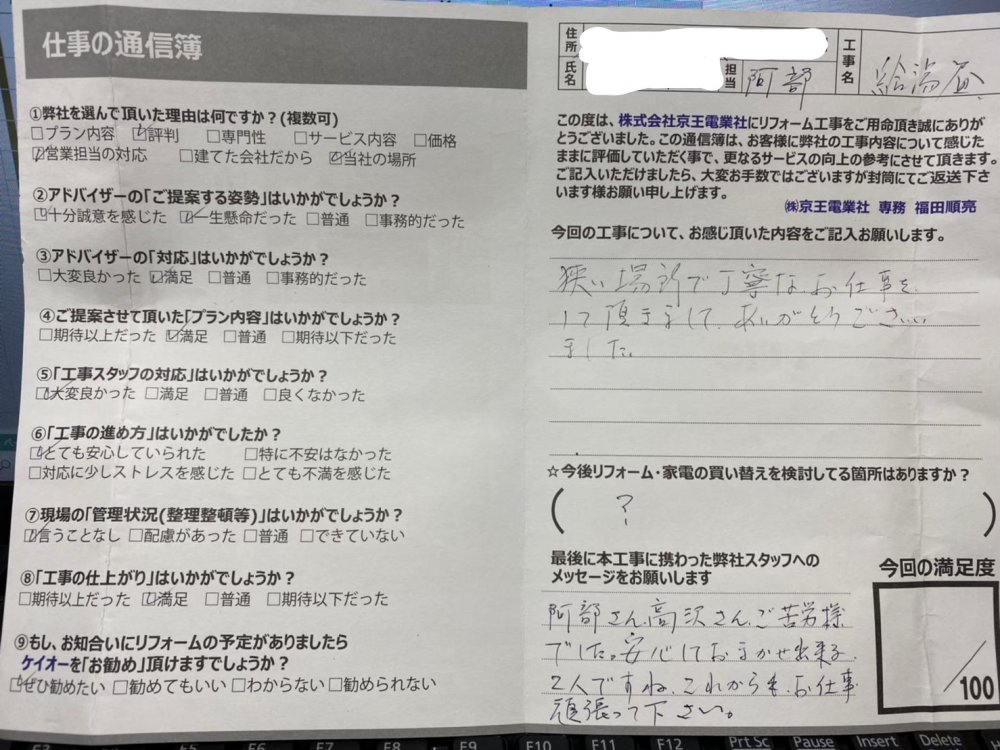 仕事の通信簿
①弊社を選んで頂いた理由は何ですか？(複数可)
□プラン内容 ☑評判 □専門性 □サービス内容 □価格
☑営業担当の対応 □建てた会社だから ☑当社の場所
②アドバイザーの「ご提案する姿勢」はいかがでしょうか？
☑十分誠意を感じた ☑一生懸命だった □普通 □事務的だった
③アドバイザーの「対応」はいかがでしょうか？
□大変良かった ☑満足 □普通 □事務的だった
④ご提案させて頂いた「プラン内容」はいかがでしょうか？
□期待以上だった ☑満足 □普通 □期待以下だった
⑤「工事スタッフの対応」はいかがでしょうか？
☑大変良かった □満足 □普通 □良くなかった
⑥「工事の進め方」はいかがでしたか？
☑とても安心していられた □特に不安はなかった
□対応に少しストレスを感じた □とても不満を感じた
⑦現場の「管理状況(整理整頓等)」はいかがでしょうか？
☑言うことなし □配慮があった □普通 □できていない
⑧「工事の仕上がり」はいかがでしょうか？
□期待以上だった ☑満足 □普通 □期待以下だった
⑨もし、お知合いにリフォームの予定がありましたら
ケイオーを「お勧め」頂けますでしょうか？
☑ぜひ勧めたい □勧めてもいい □わからない □勧められない
住所
氏名
担当 阿部
工事名 給湯器
この度は、株式会社京王電業社にリフォーム工事をご用命頂き誠にありが
とうございました。この通信簿は、お客様に弊社の工事内容について感じた
ままに評価していただく事で、更なるサービスの向上の参考にさせて頂きます。
ご記入いただけましたら、大変お手数ではございますが封筒にてご返送下さ
います様お願い申し上げます。
㈱京王電業社 専務 福田順亮
今回の工事について、お感じ頂いた内容をご記入お願いします。
狭い場所で丁寧なお仕事を
して頂きまして、ありがとうござい
ました。
☆今後リフォーム・家電の買い替えを検討してる箇所はありますか？
( ? )
最後に本工事に携わった弊社スタッフへの
メッセージをお願いします
阿部さん、高沢さん、ご苦労様
でした。安心しておまかせ出来る
2人ですね、これからもお仕事
頑張って下さい。
今回の満足度
/100
F5 F6 F7 F8 F9 F10 F11 F12 Prt Sc Pause Insert Delete